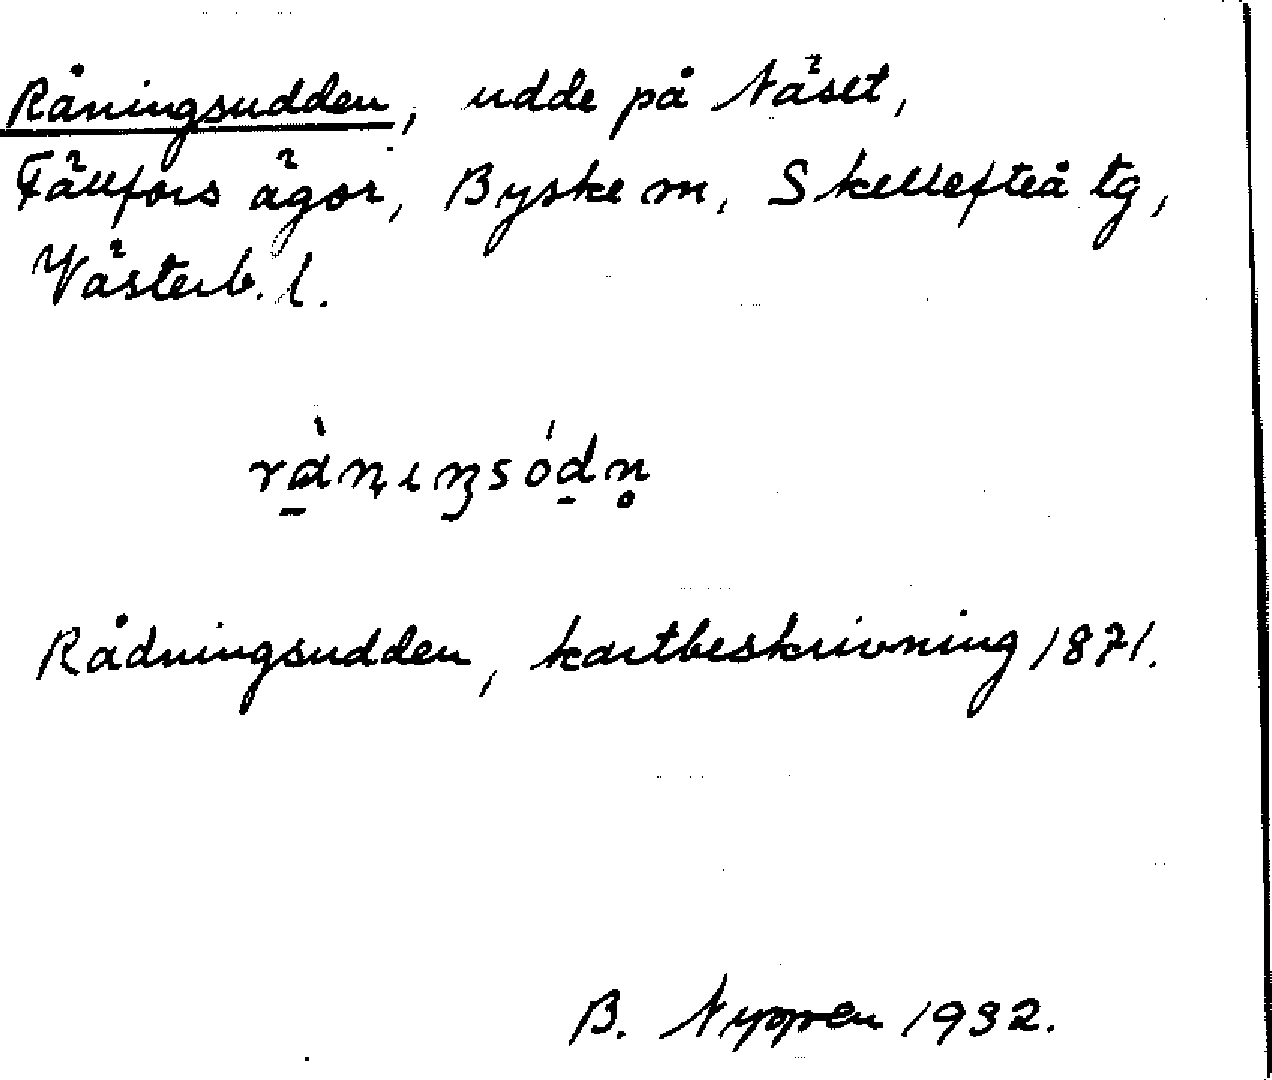 Råningsudden, udde på Näset,
Fällfors ägor, Byske sn, Skellefteå tg,
Västerb. l.
rå̀nıŋsódn̥
Rådningsudden, kartbeskrivning 1871.
B. Nyppen 1932.